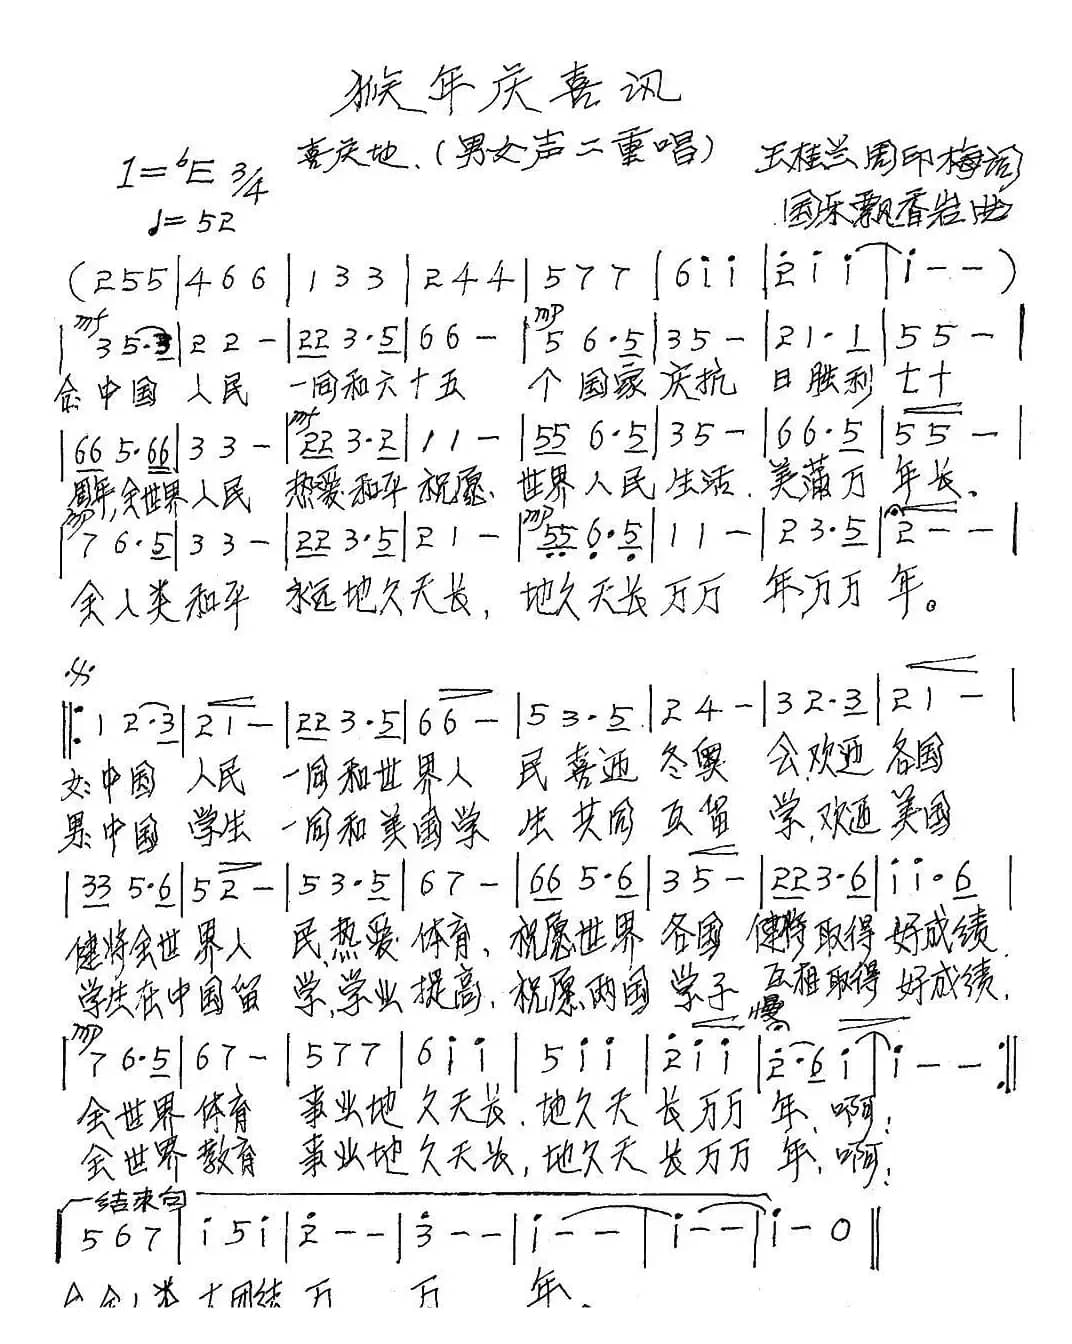 猴年庆喜讯
喜庆地.(男女声二重唱)
王桂兰周印梅词
1=♭E 3/4
国乐飘香岩曲
♩=52
(2 5 5|4 6 6|1 3 3|2 4 4|5 7 7|6 i i|2̇ i i|i - -)
mf mp
|3 5·3|2 2 -|22 3·5|6 6 -|5 6·5|3 5 -|2 1·1|5 5 -|
合:中国 人民 一同和六十五 个国家庆抗 日胜利七十
mf
|66 5·66|3 3 -|22 3·2|1 1 -|55 6·5|3 5 -|6 6·5|5 5 -|
周年,全世界人民 热爱和平祝愿. 世界人民生活. 美蒲万 年长.
mp mp
|7 6·5|3 3 -|22 3·5|2 1 -|5̣5̣ 6̣·5̣|1 1 -|2 3·5|2 - -|
全人类和平 永远地久天长, 地久天长万万 年,万万年。
𝄋
‖:1 2·3|2 1 -|22 3·5|6 6 -|5 3·5|2 4 -|3 2·3|2 1 -|
女:中国 人民 一同和世界人 民喜迎冬奥 会,欢迎各国
男:中国 学生 一同和美国学 生共同互留 学,欢迎美国
|33 5·6|5 2 -|5 3·5|6 7 -|66 5·6|3 5 -|22 3·6|i i·6|
健将全世界人 民,热爱体育, 祝愿世界各国 健将取得好成绩.
学生在中国留 学,学业提高, 祝愿两国学子 互相取得好成绩.
mp 慢
|7 6·5|6 7 -|5 7 7|6 i i|5 i i|2̇ i i|2̇·6 i|i - -:‖
全世界体育 事业地久天长. 地久天长万万年, 啊;
全世界教育 事业地久天长, 地久天长万万年, 啊;
结束句
|5 6 7|i 5 i|2̇ - -|3̇ - -|i - -|i - -|i - 0‖
万 万 年.